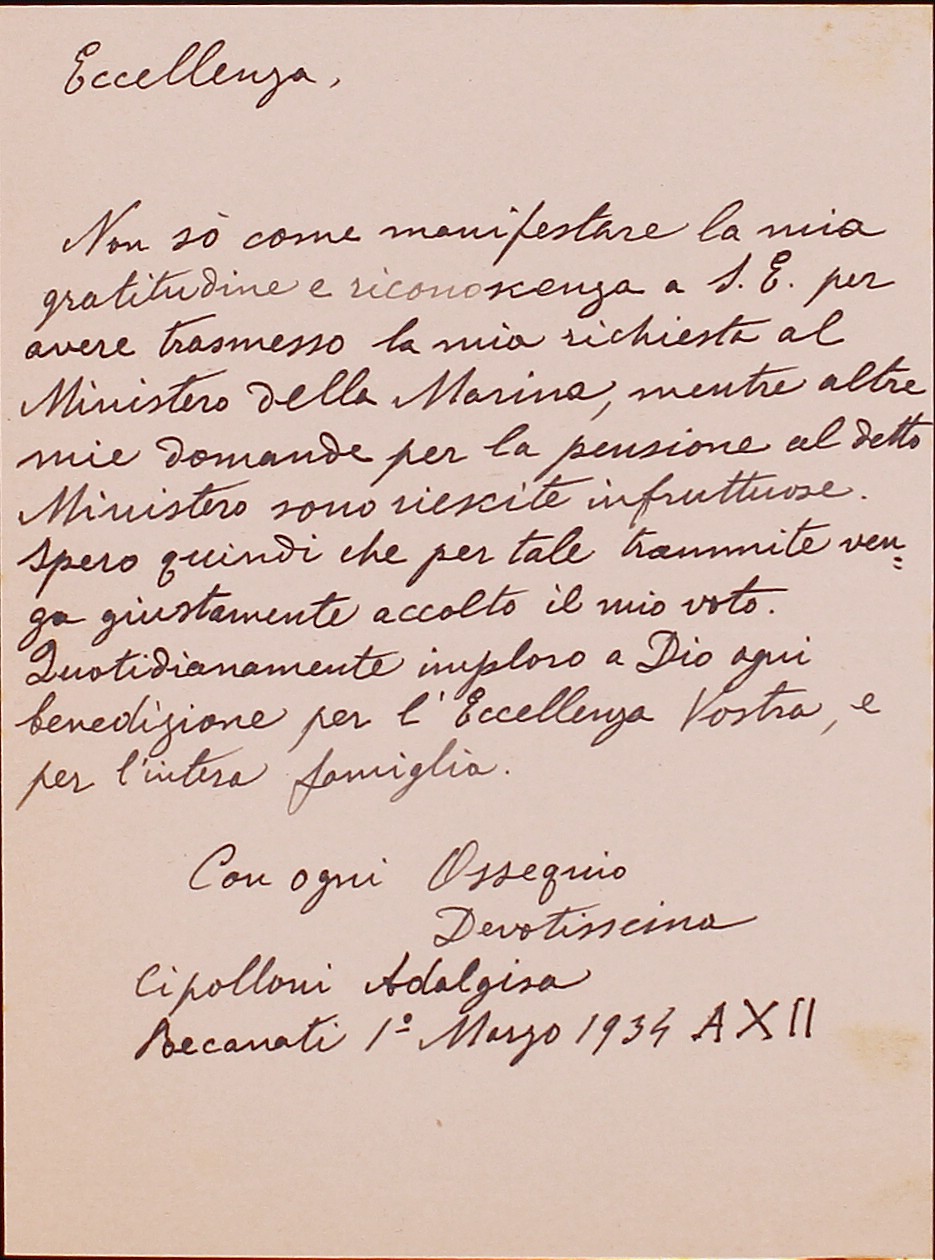 Eccellenza,
Non sò come manifestare la mia
gratitudine e riconoscenza a S. E. per
avere trasmesso la mia richiesta al
Ministero della Marina, mentre altre
mie domande per la pensione al detto
Ministero sono riescite infruttuose.
Spero quindi che per tale trammite ven=
ga giustamente accolto il mio voto.
Quotidianamente imploro a Dio ogni
benedizione per l'Eccellenza Vostra, e
per l'intera famiglia.
Con ogni Ossequio
Devotissima
Cipolloni Adalgisa
Recanati 1° Marzo 1934 A XII